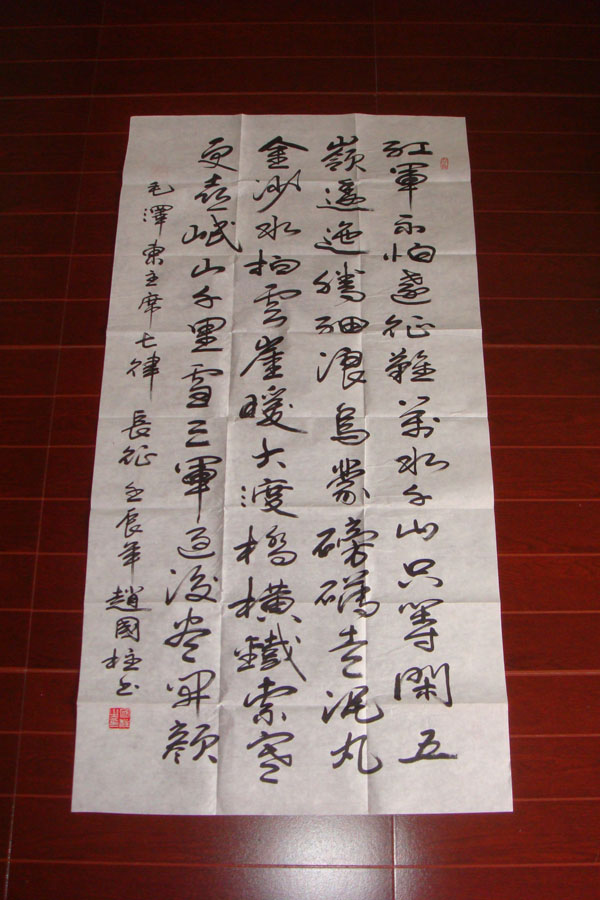 紅軍不怕遠征難萬水千山只等閑五
嶺逶迤騰細浪烏蒙磅礴走泥丸
金沙水拍雲崖暖大渡橋橫鐵索寒
更喜岷山千里雪三軍過後盡開顏
毛澤東主席七律 長征 壬辰年 趙國柱书